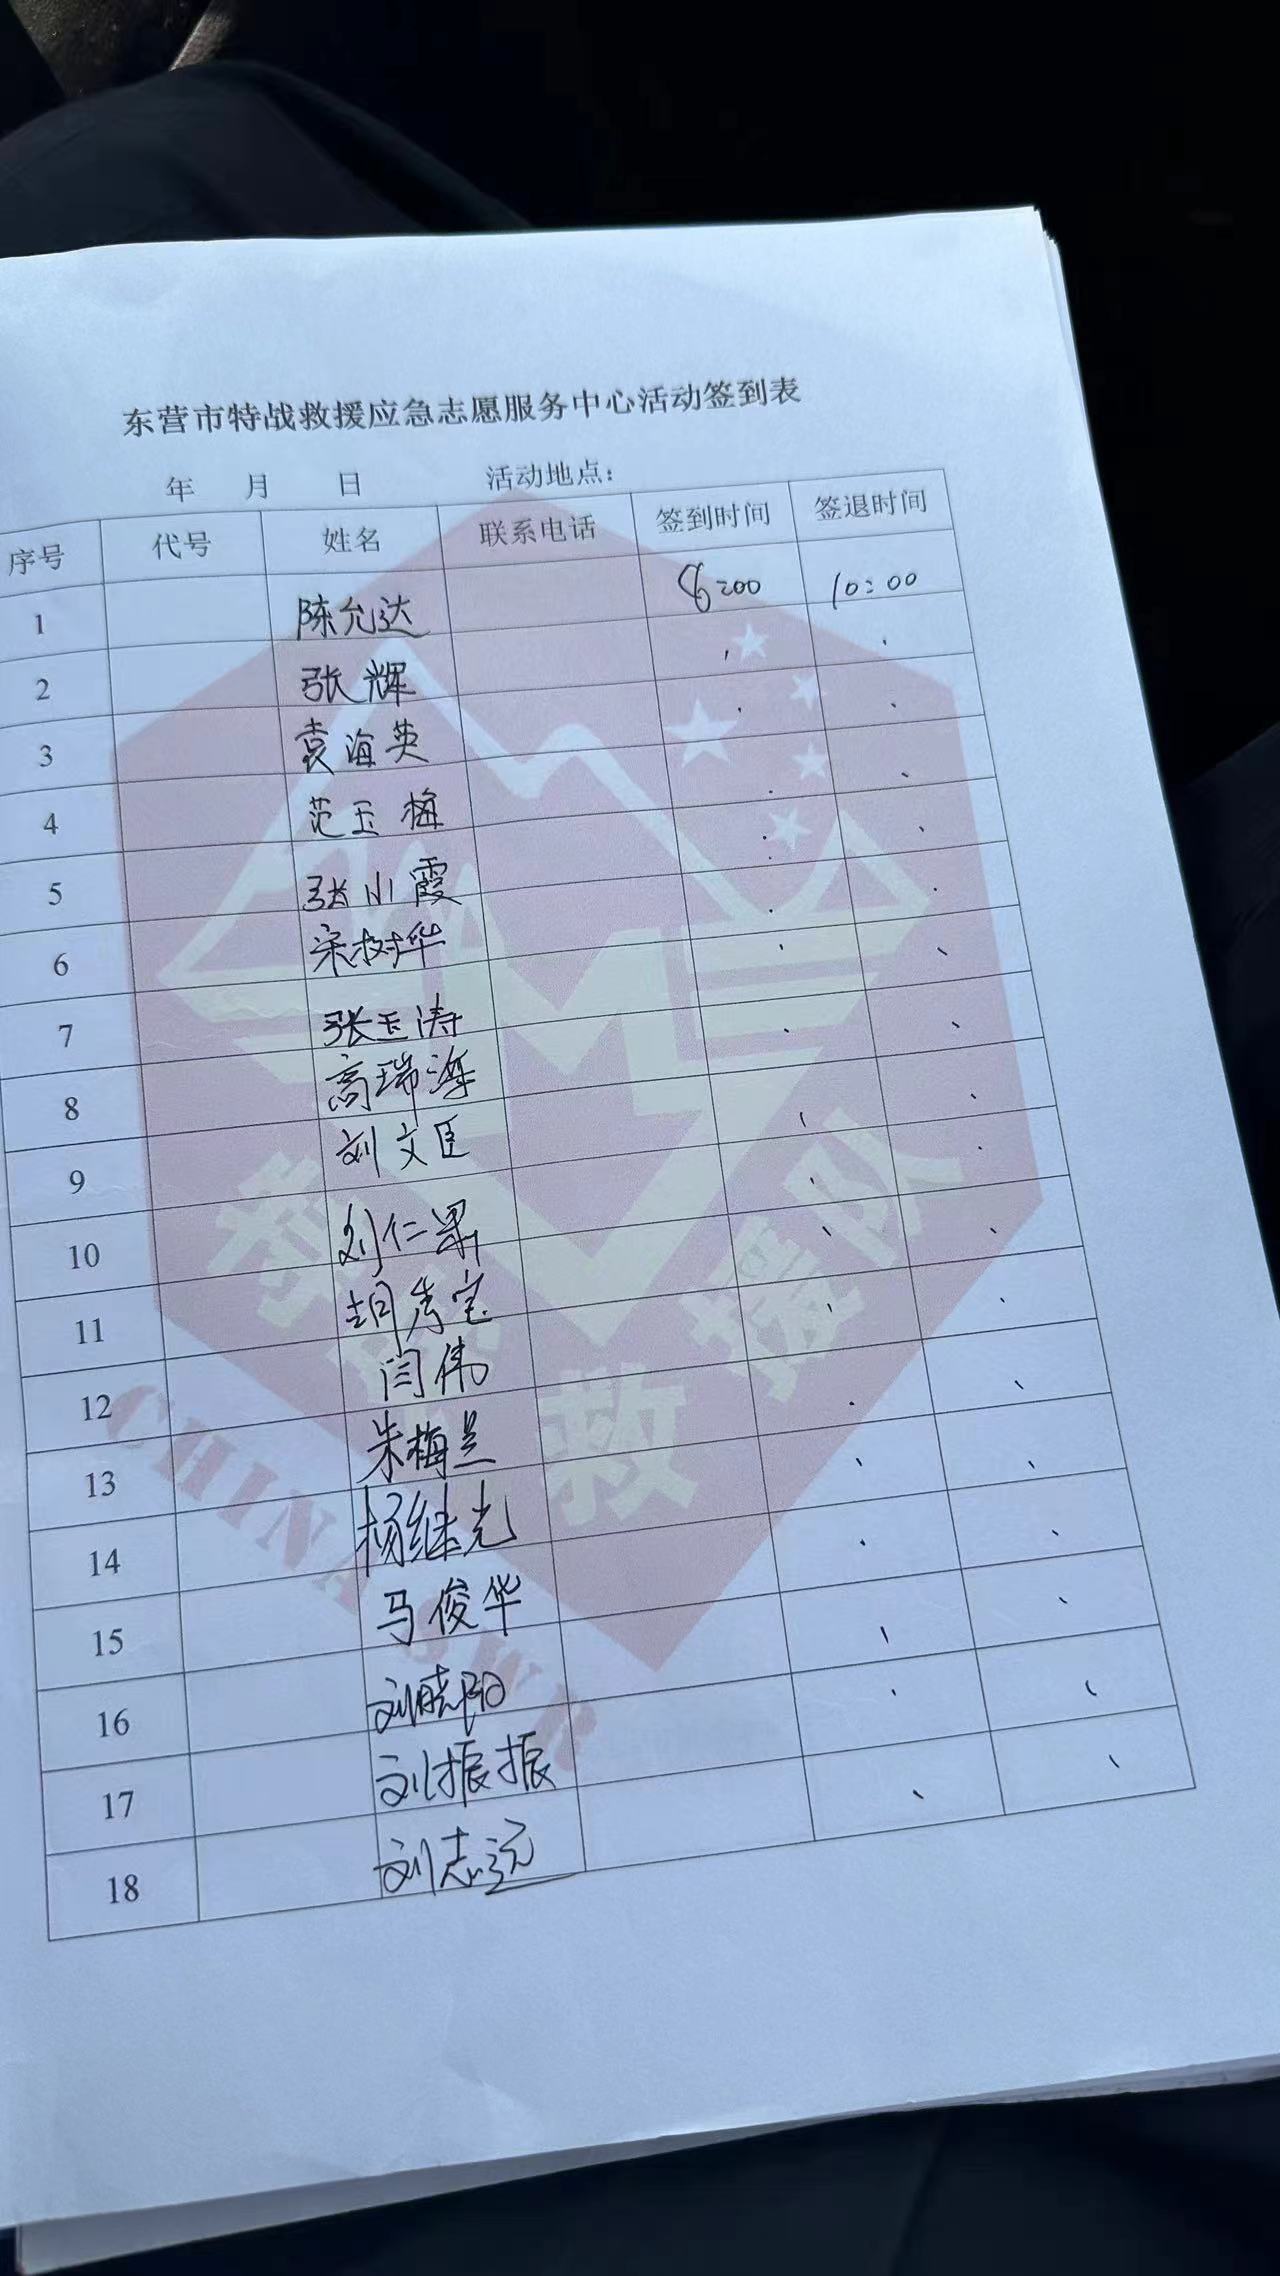 东营市特战救援应急志愿服务中心活动签到表
年 月 日 活动地点：
序号 代号 姓名 联系电话 签到时间 签退时间
1 陈允达 8:00 10:00
2 张辉
3 袁海英
4 范玉梅
5 张小霞
6 宋树华
7 张玉涛
8 高瑞海
9 刘文臣
10 刘仁
11 胡秀宝
12 闫伟
13 朱梅兰
14 杨继光
15 马俊华
16 刘晓阳
17 刘振振
18 刘志远
特战救援队
CHINA SWR